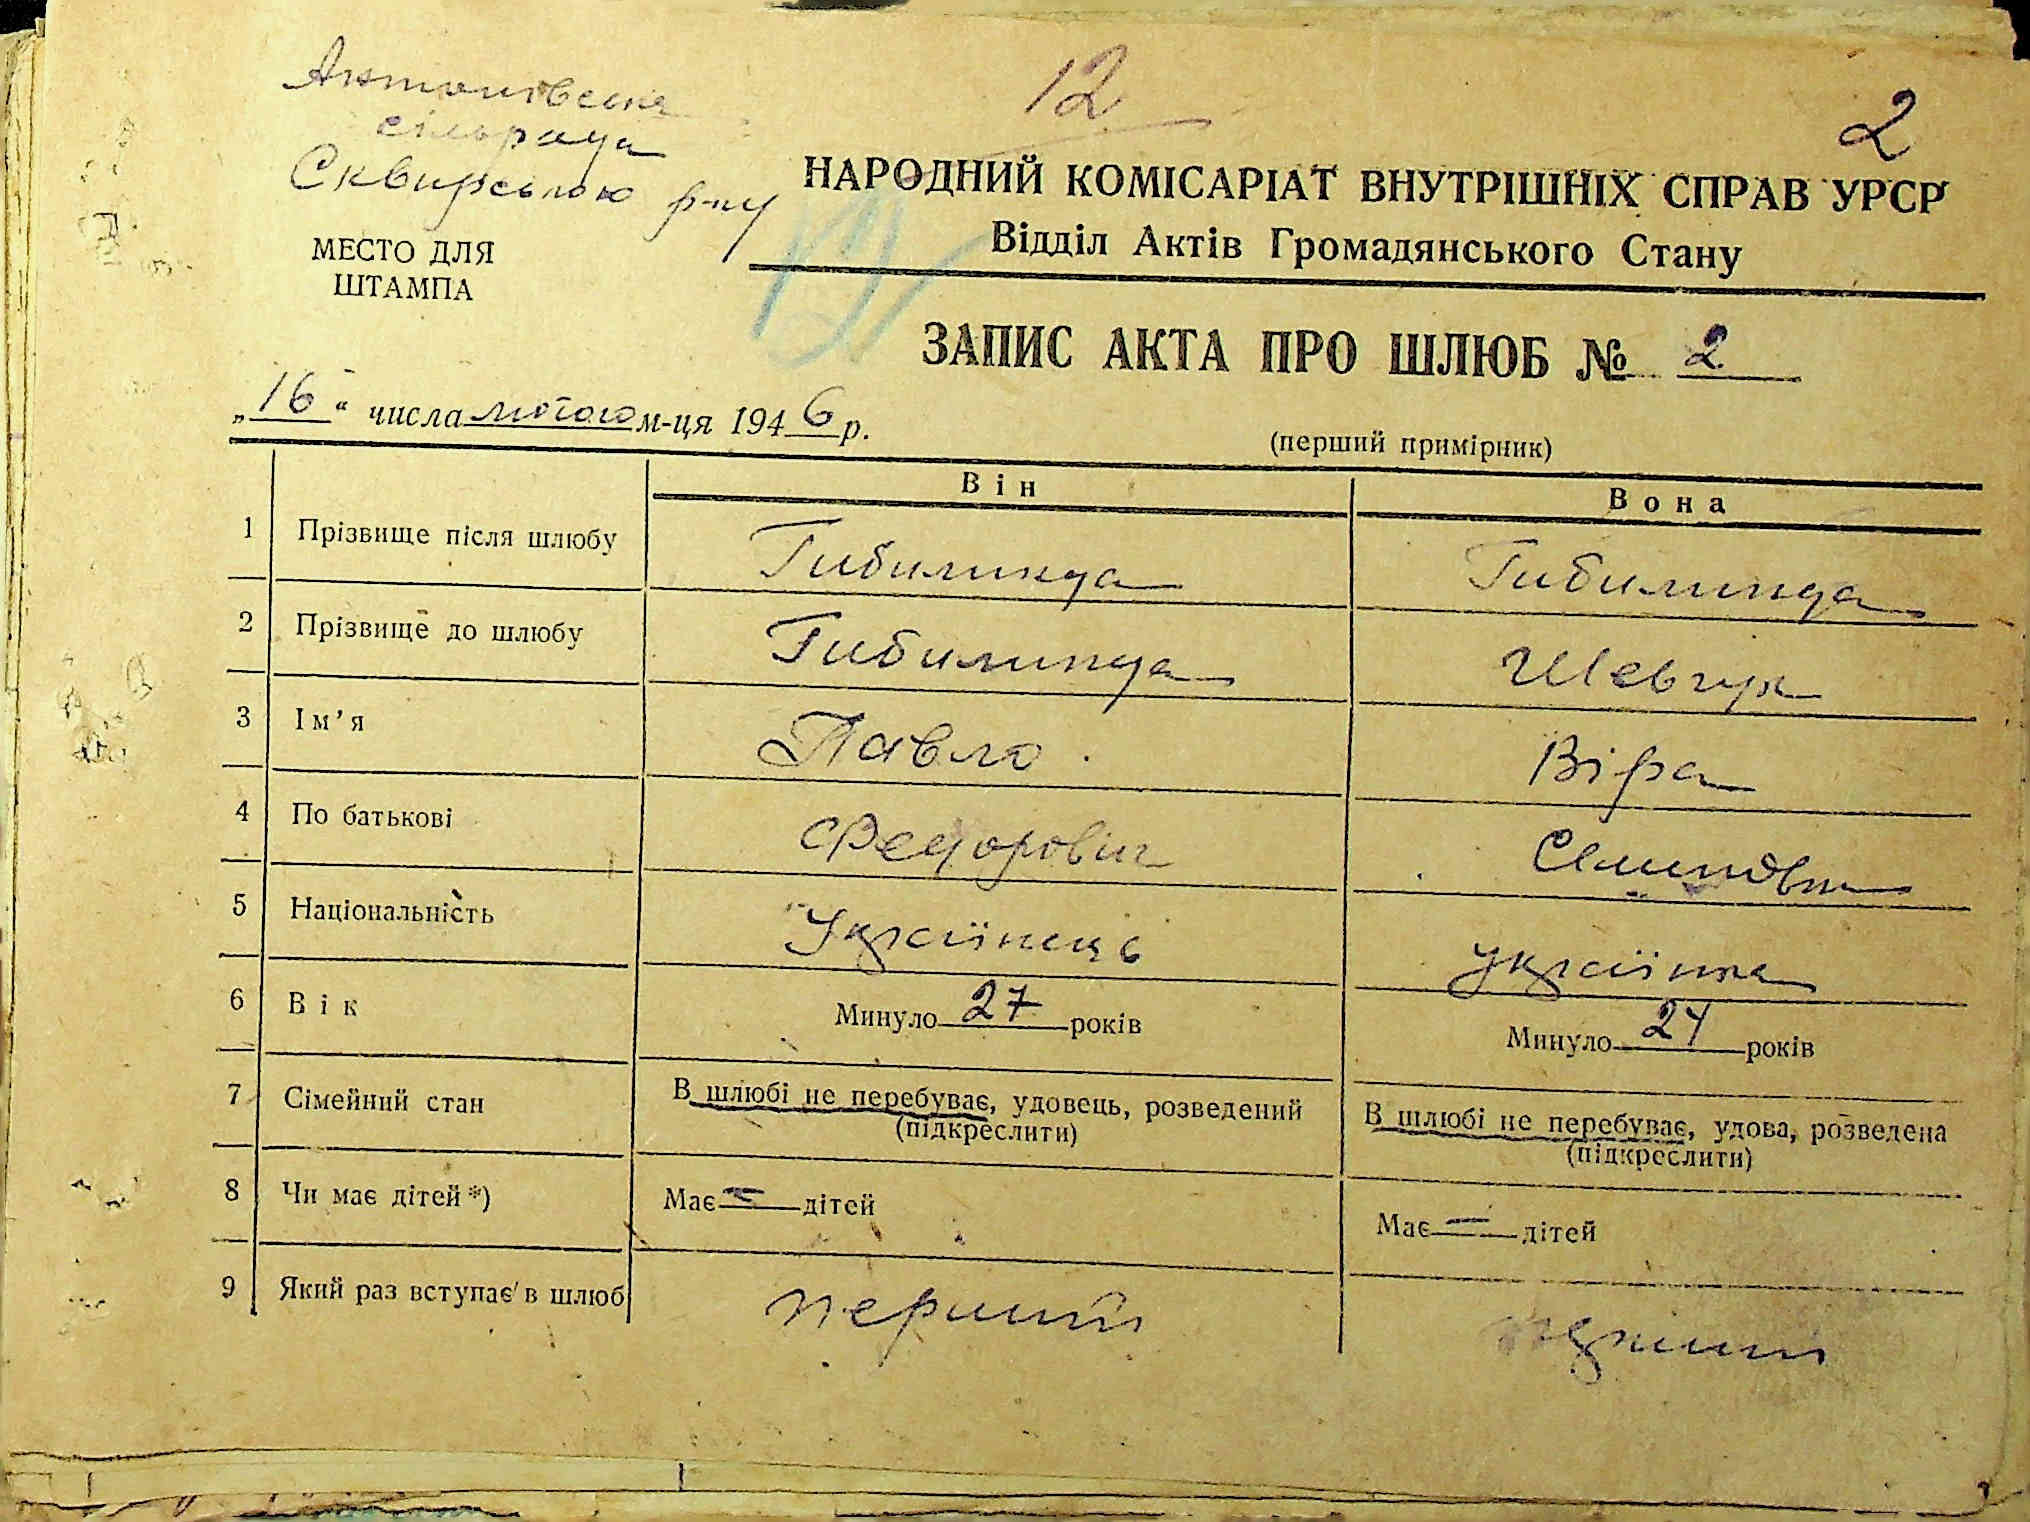 12
2
Антонівська
сільрада
Сквирського р-ну
НАРОДНИЙ КОМІСАРІАТ ВНУТРІШНІХ СПРАВ УРСР
Відділ Актів Громадянського Стану
МЕСТО ДЛЯ
ШТАМПА
ЗАПИС АКТА ПРО ШЛЮБ № 2
„16“ числа лютого м-ця 1946 р.
(перший примірник)
Він Вона
1 Прізвище після шлюбу Гибилинда Гибилинда
2 Прізвище до шлюбу Гибилинда Шевчук
3 Ім'я Павло Віра
4 По батькові Федорович
5 Національність Українець українка
6 Вік Минуло 27 років Минуло 24 років
7 Сімейний стан В шлюбі не перебуває, удовець, розведений В шлюбі не перебуває, удова, розведена
(підкреслити) (підкреслити)
8 Чи має дітей*) Має — дітей Має — дітей
9 Який раз вступає в шлюб перший перший